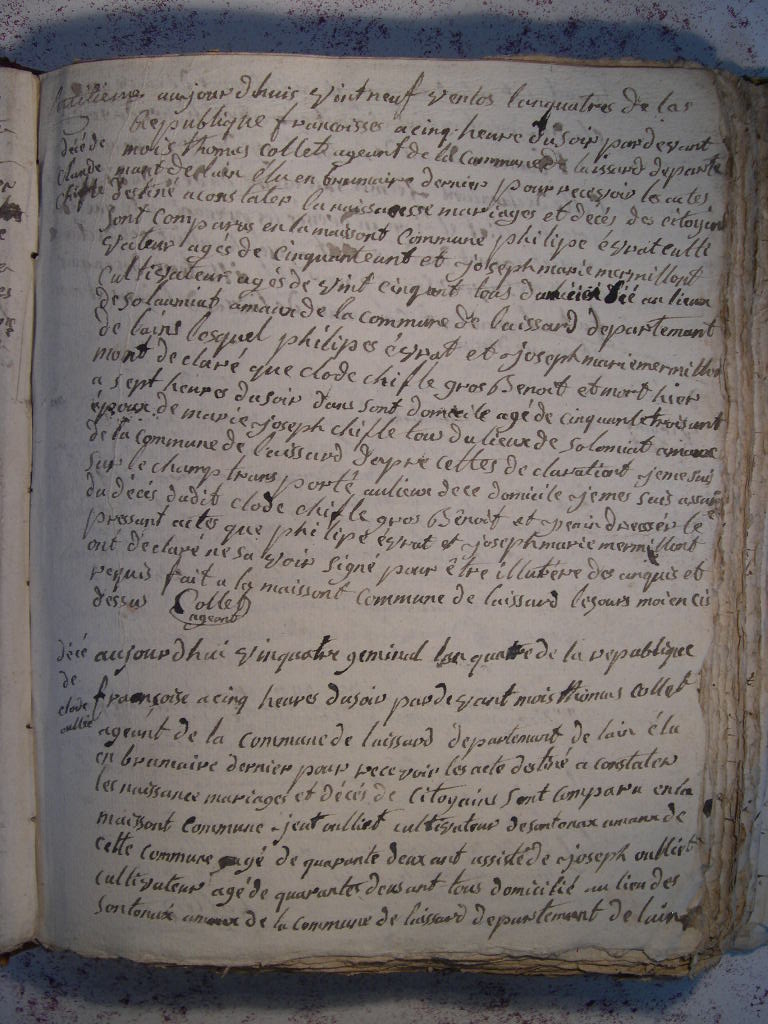 aujourdhuis vintneuf ventos lanquatres de las
Republique francoisses a cinq heure du soir pardevant
décé de
mois thomas collet ageant de la Commune de laissard departe
claude
mant de lain élu en brumaire dernier pour recevoir les actes
chifle
destiné a constater la naissasesse mariages et decés des citoyin
sont comparus en la maissont Commune philipe évrat culti
vateur agés de cinquanteunt et joseph marie mermillont
cultivateur agés de vint cinqant tous au lieux
de solaumiat amaix de la commune de laissard departemant
de lains lesquel philipes évrat et joseph marie mermillon
mont declaré que clode chifle gros Benoit et mort hier
a sept heures du soir dans sont domicile agé de cinquantetroisant
époux de marie joseph chifle tou du lieux de solomiat
de la commune de laissard dapre cettes declarationt jeme suis
sur le champ transporté au lieux dece domicile jemes suis assuré
du décés dudit clode chifle gros Bénoit et jeain dressér le
pressant actes que philipe évrat et joseph marie mermillont
ont déclaré ne savoir signé pour être illutére des anquis et
requis fait a la maissont Commune de laissard lesjours moiencis
déssus Collet
ageant
décé
aujourdhui vinquatre geminal lan quatre de la republique
de
françoise a cinq heures dusoir pardevant mois thomas collet
clode
oullié
ageant de la commune de laissard departemant de lain élu
en brumaire dernier pour recevoir les acte destiné a constater
les naissance mariages et décés de Citoyains sont comparu en la
maissont Commune jeut oulliet cultivateur desontonax amaux de
cette commune agé de quarante deux ant assisté de joseph oulliet
cultivateur agé de quarantes deusant tous domicilié au lieu des
sontonax amaux de la commune de laissard departemant de lain